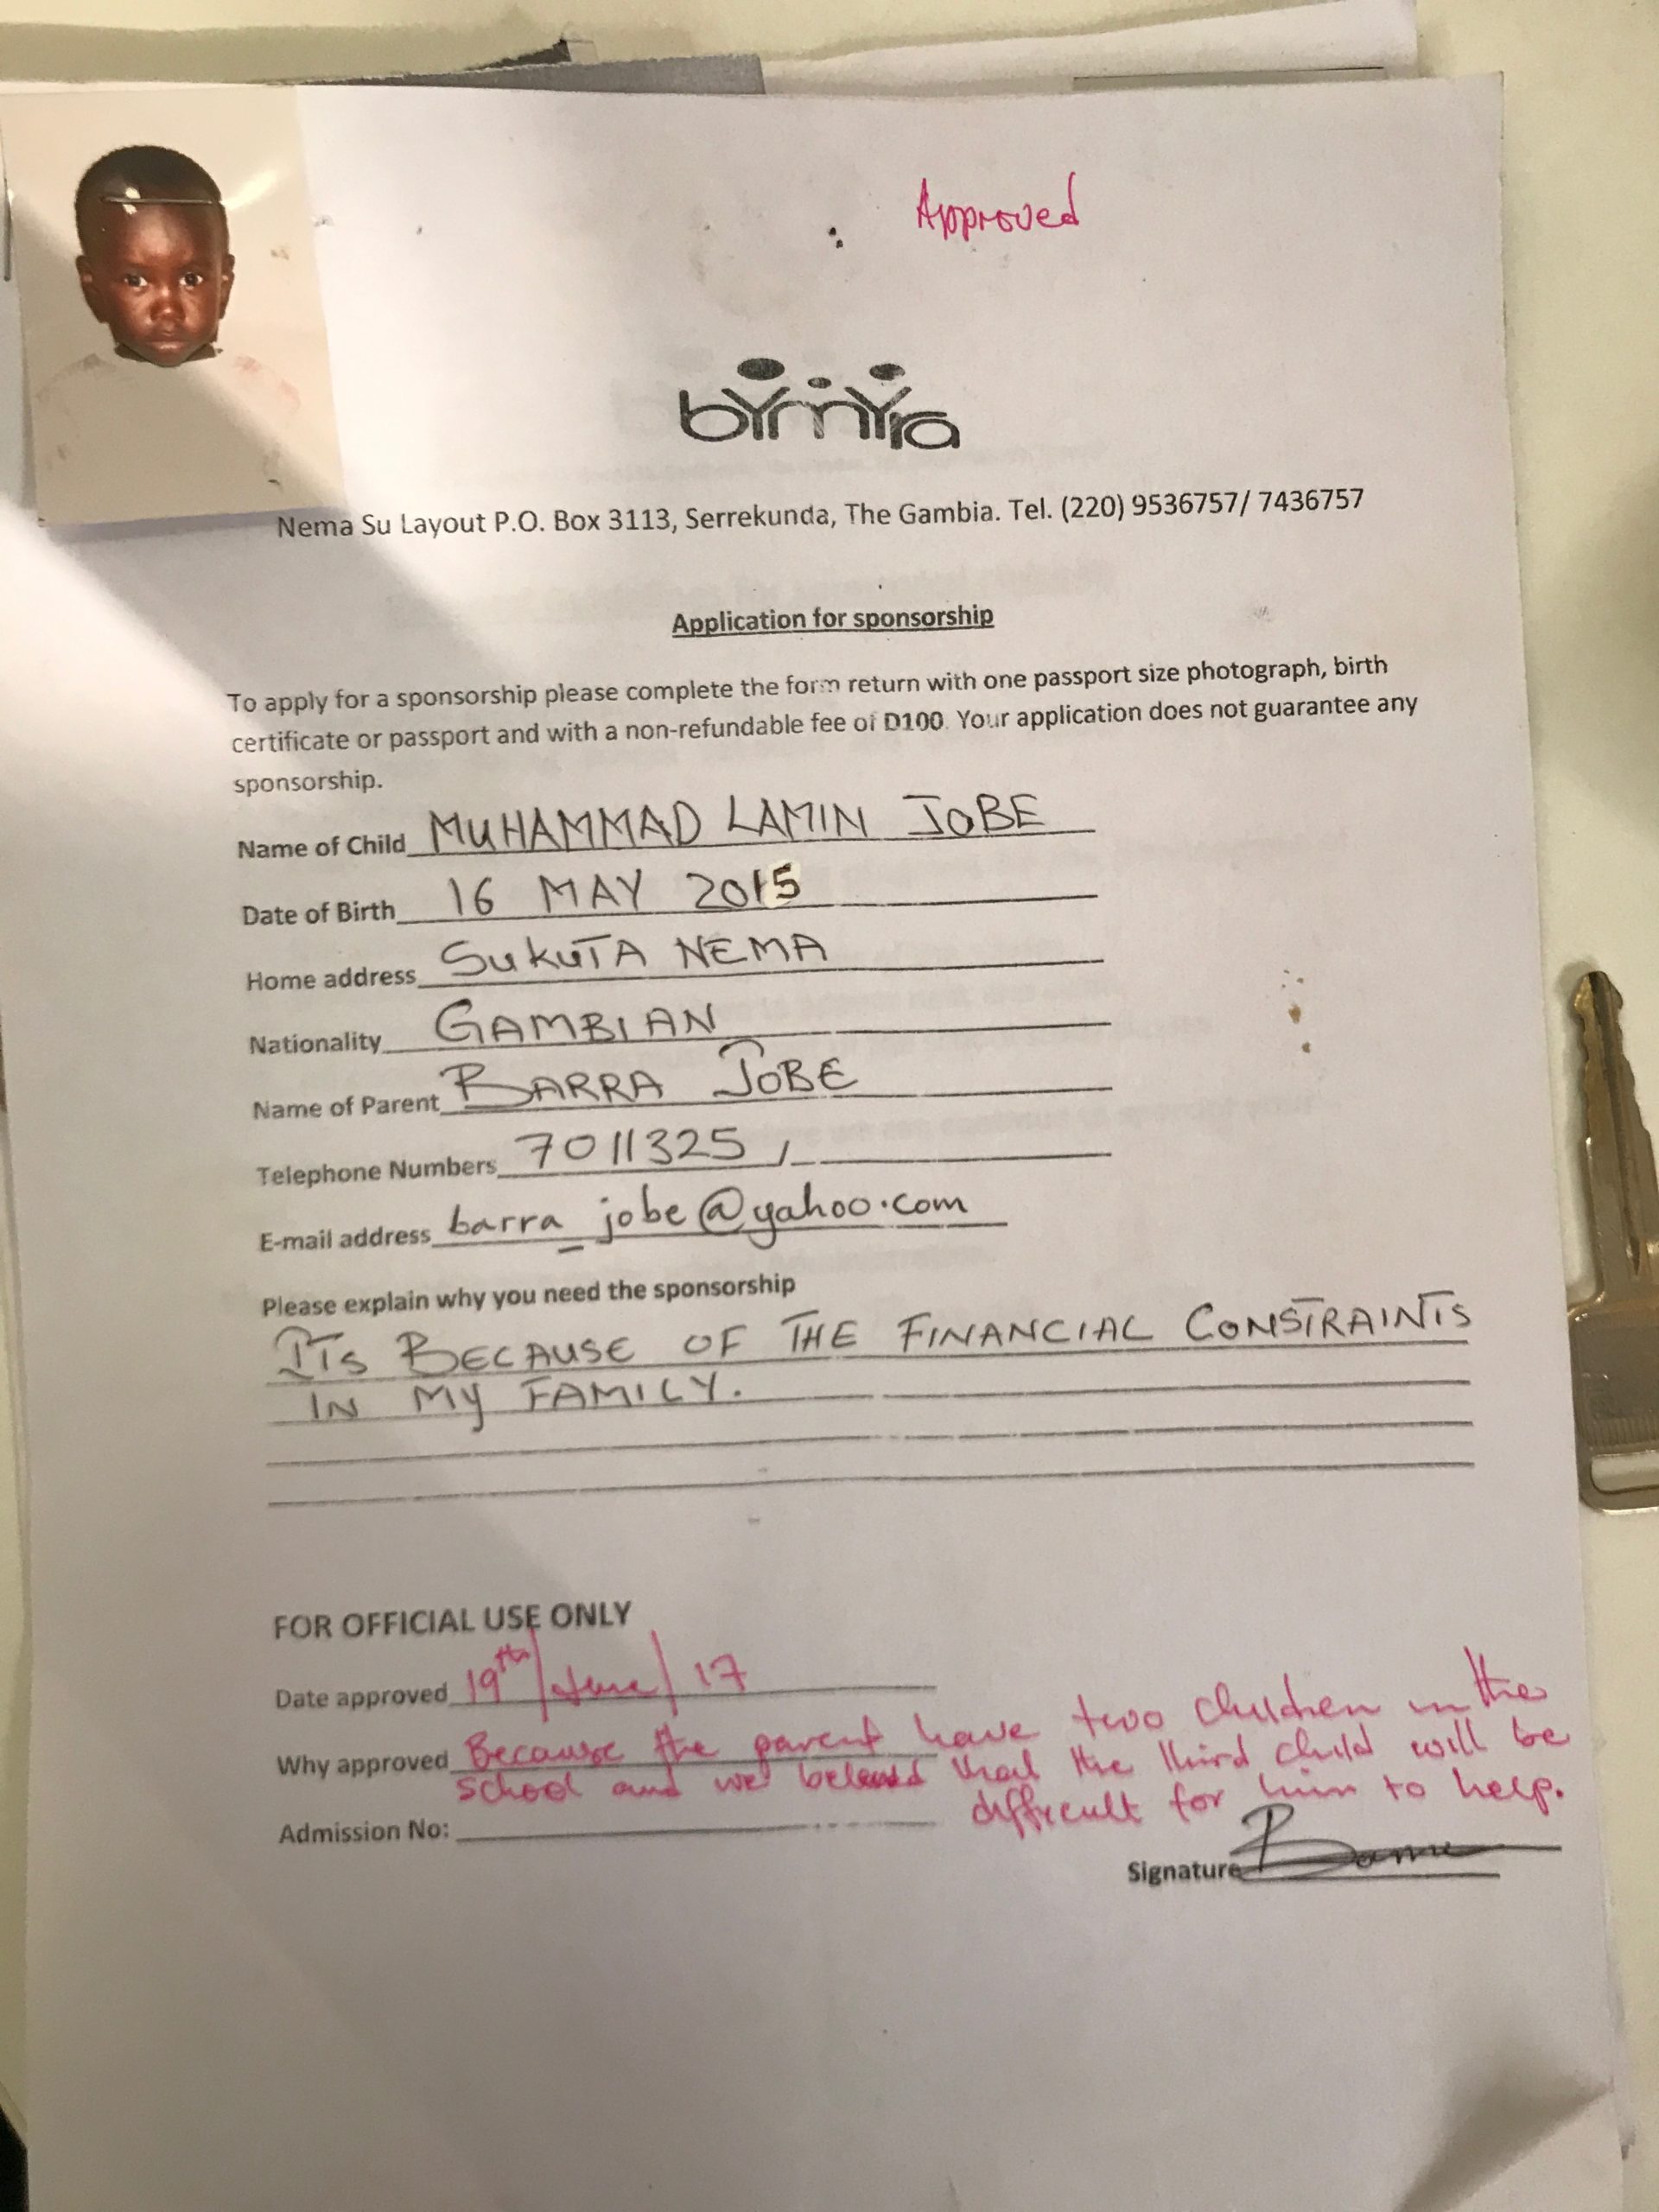 Approved
bymyra
Nema Su Layout P.O. Box 3113, Serrekunda, The Gambia. Tel. (220) 9536757/ 7436757
Application for sponsorship
To apply for a sponsorship please complete the form return with one passport size photograph, birth
certificate or passport and with a non-refundable fee of D100. Your application does not guarantee any
sponsorship.
Name of Child MUHAMMAD LAMIN JOBE
Date of Birth 16 MAY 2015
Home address SUKUTA NEMA
Nationality GAMBIAN
Name of Parent BARRA JOBE
Telephone Numbers 7011325 /
E-mail address barra_jobe@yahoo.com
Please explain why you need the sponsorship
ITS BECAUSE OF THE FINANCIAL CONSTRAINTS
IN MY FAMILY.
FOR OFFICIAL USE ONLY
Date approved 19th/June/17
Why approved Because the parent have two children in the
school and we that the third child will be
difficult for him to help.
Admission No:
Signature